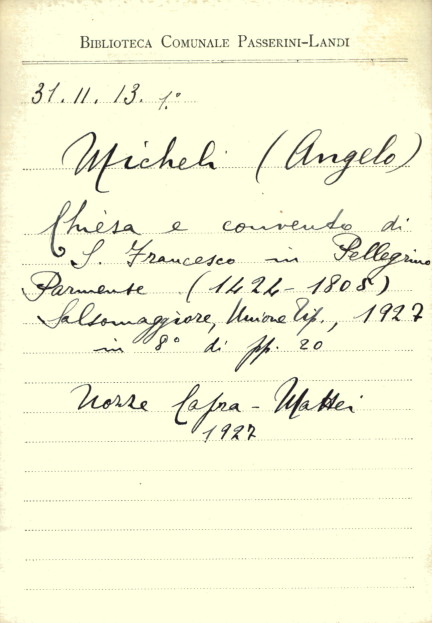 BIBLIOTECA COMUNALE PASSERINI-LANDI
31. II. 13. 1.º
Micheli (Angelo)
Chiesa e convento di
S. Francesco in Pellegrino
Parmense (1424-1805)
Salsomaggiore, Unione Tip., 1927
in 8º di pp. 20
Nozze Capra - Mattei
1927